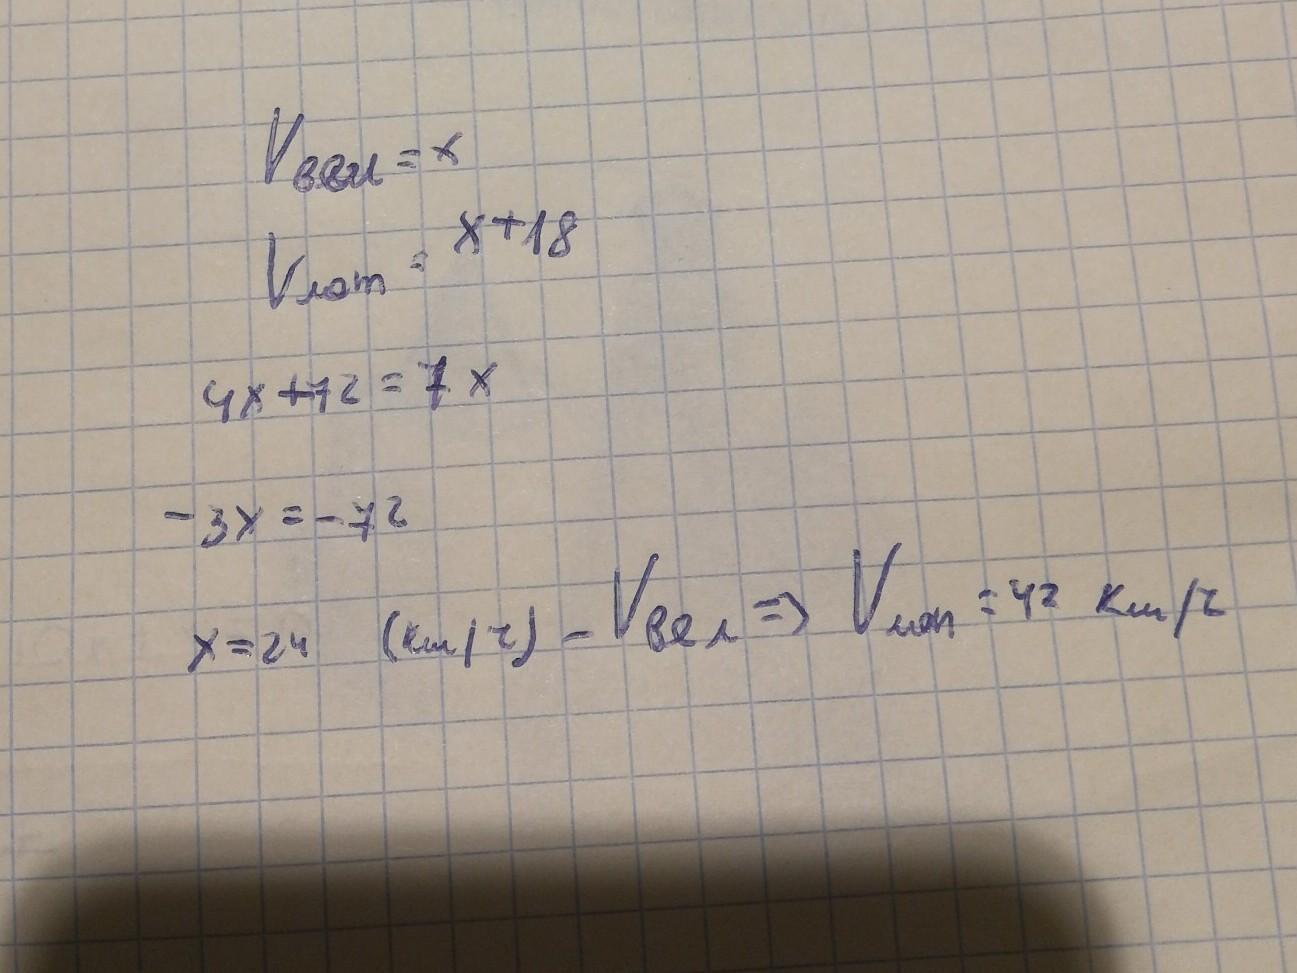 Vвел = x
Vлот = x+18
4x+72 = 7x
-3x = -72
x = 24 (км/ч) - Vвел => Vлоп = 42 км/ч